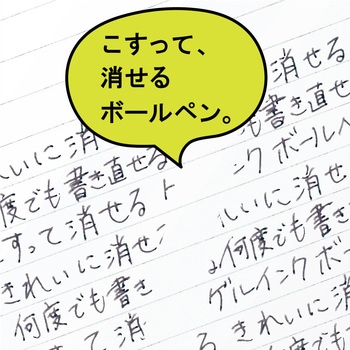 こすって、
消せる
ボールペン。
消せる
も書き直せ
ンクボールペ
れいに消
度でも書き直せる
すって消せる
きれいに消せ
何度でも書き
て消
いいに消せ
何度でも書き
ゲルインクボー
る きれいに消